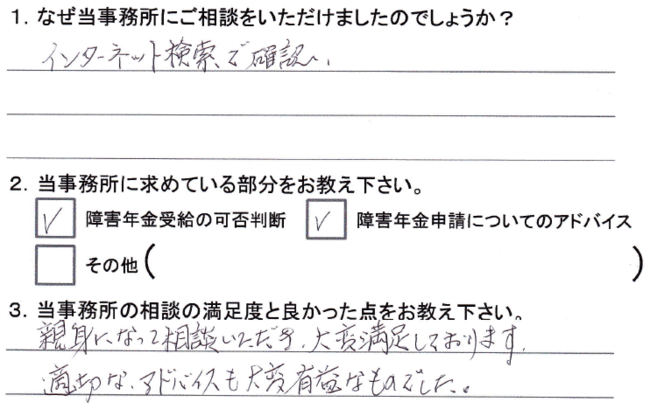 1. なぜ当事務所にご相談をいただけましたのでしょうか？
インターネット検索で確認。
2. 当事務所に求めている部分をお教え下さい。
障害年金受給の可否判断 障害年金申請についてのアドバイス
その他（ ）
3. 当事務所の相談の満足度と良かった点をお教え下さい。
親身になって相談いただき、大変満足しております。
適切な、アドバイスも大変有益なものでした。